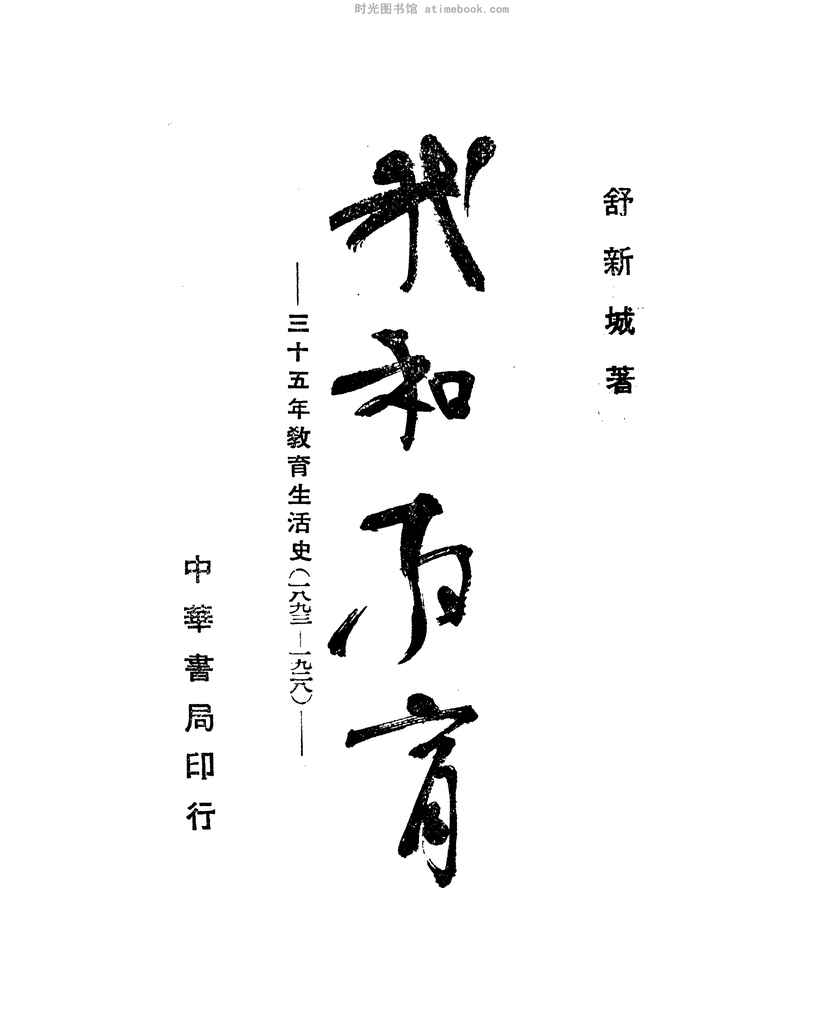 时光图书馆 atimebook.com
舒新城著
我和教育
——三十五年教育生活史(一八九三—一九二八)——
中華書局印行